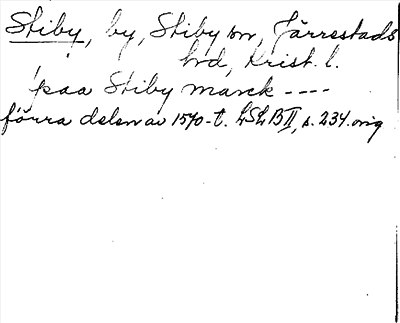 Stiby, by, Stiby sn, Järrestads
hd, Krist. l.
paa Stiby marck ----
förra delen av 1570-t. LSLB II, s. 234. orig